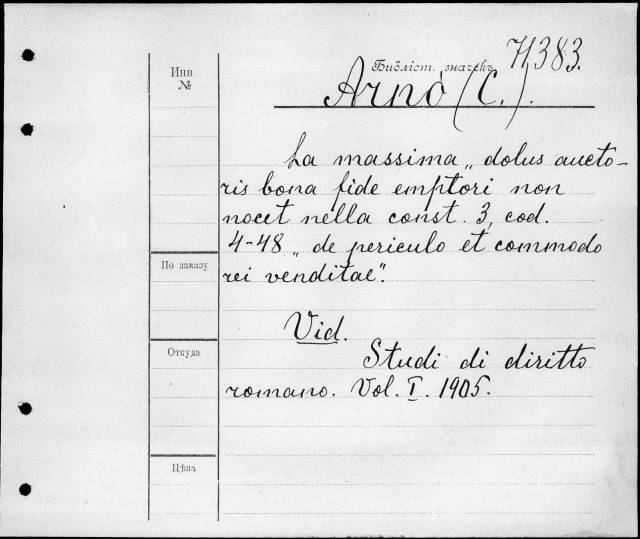 71,383.
Инв. №
Библіот. значекъ
Arnò (C.).
La massima „dolus aucto-
ris bona fide emptori non
nocet nella const. 3, cod.
4-48 „de periculo et commodo
rei venditae".
По заказу
Vid.
Откуда
Studi di diritto
romano. Vol. I. 1905.
Цѣна